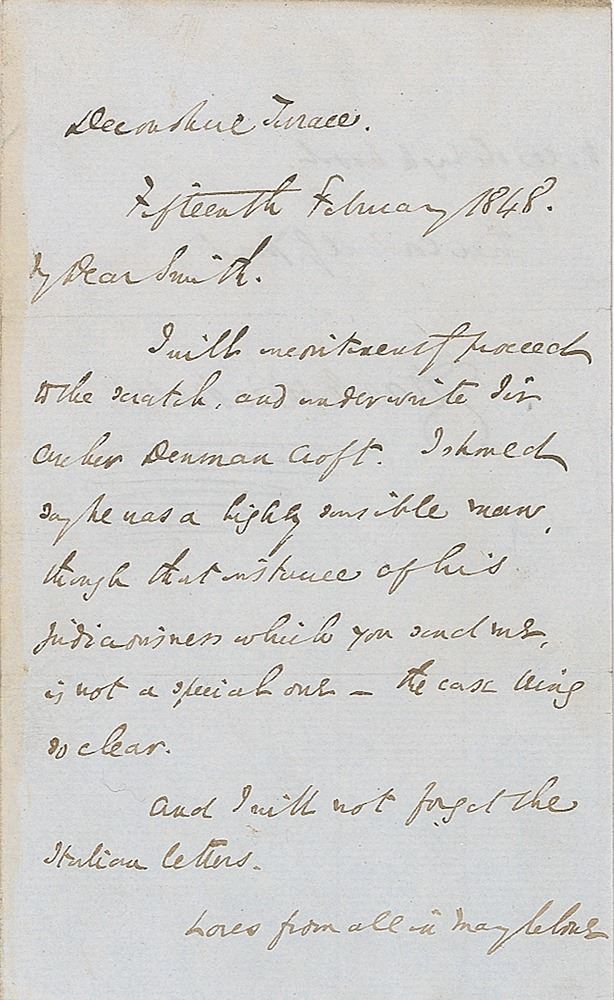 Devonshire Terrace.
Fifteenth February 1848.
My Dear Smith.
I will incontinently proceed
to the scratch, and underwrite Sir
Archer Denman Croft. I should
say he was a highly sensible man,
though that instance of his
Judiciousness which you send me,
is not a special one – the case being
so clear.
And I will not forget the
Italian letters.
Loves from all in Marylebone